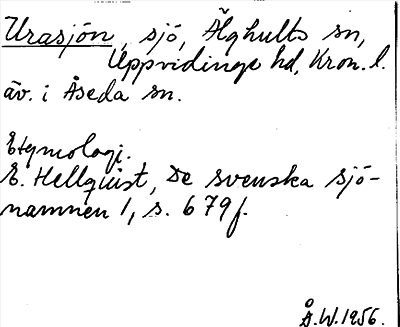 Urasjön, sjö, Älghults sn,
Uppvidinge hd, Kron. l.
äv. i Åseda sn.
Etymologi.
E. Hellquist, De svenska sjö-
namnen 1, s. 679f.
Å.W.1956.